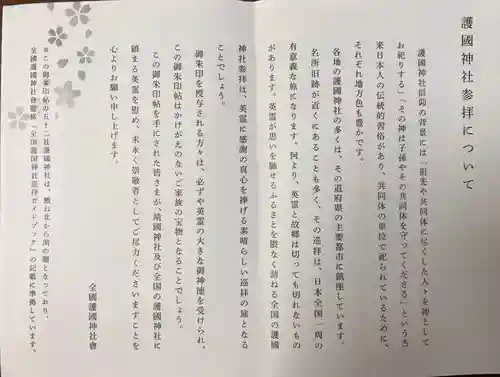 護國神社参拝について
護國神社信仰の背景には「祖先や共同体に尽くした人々を神として
お祀りする」「その神は子孫やその共同体を守ってくださる」という古
来日本人の伝統的習俗があり、共同体の単位で祀られているために、
それぞれ地方色も豊かです。
各地の護國神社の多くは、その道府県の主要都市に鎮座しています。
名所旧跡が近くにあることも多く、その巡拝は、日本全国一周の
有意義な旅になります。何より、英霊と故郷は切っても切れないもの
があります。英霊が思いを馳せるふるさとを損なく訪ねる全国の護國
神社参拝は、英霊に感謝の真心を捧げる素晴らしい巡拝の旅となる
ことでしょう。
御朱印を授与される方々は、必ずや英霊の大きな御神徳を受けられ、
この御朱印帖はかけがえのないご家族の宝物となることでしょう。
この御朱印帖を手にされた皆さまが、靖國神社及び全国の護國神社に
鎮まる英霊を慰め、末永く崇敬者としてご尽力くださいますことを
心よりお願い申し上げます。
全國護國神社會
※この御朱印帖の五十二社護國神社は、概ね北から南の順となっており、
全國護國神社會監修「全国護国神社巡拝ガイドブック」の記載に準拠しています。